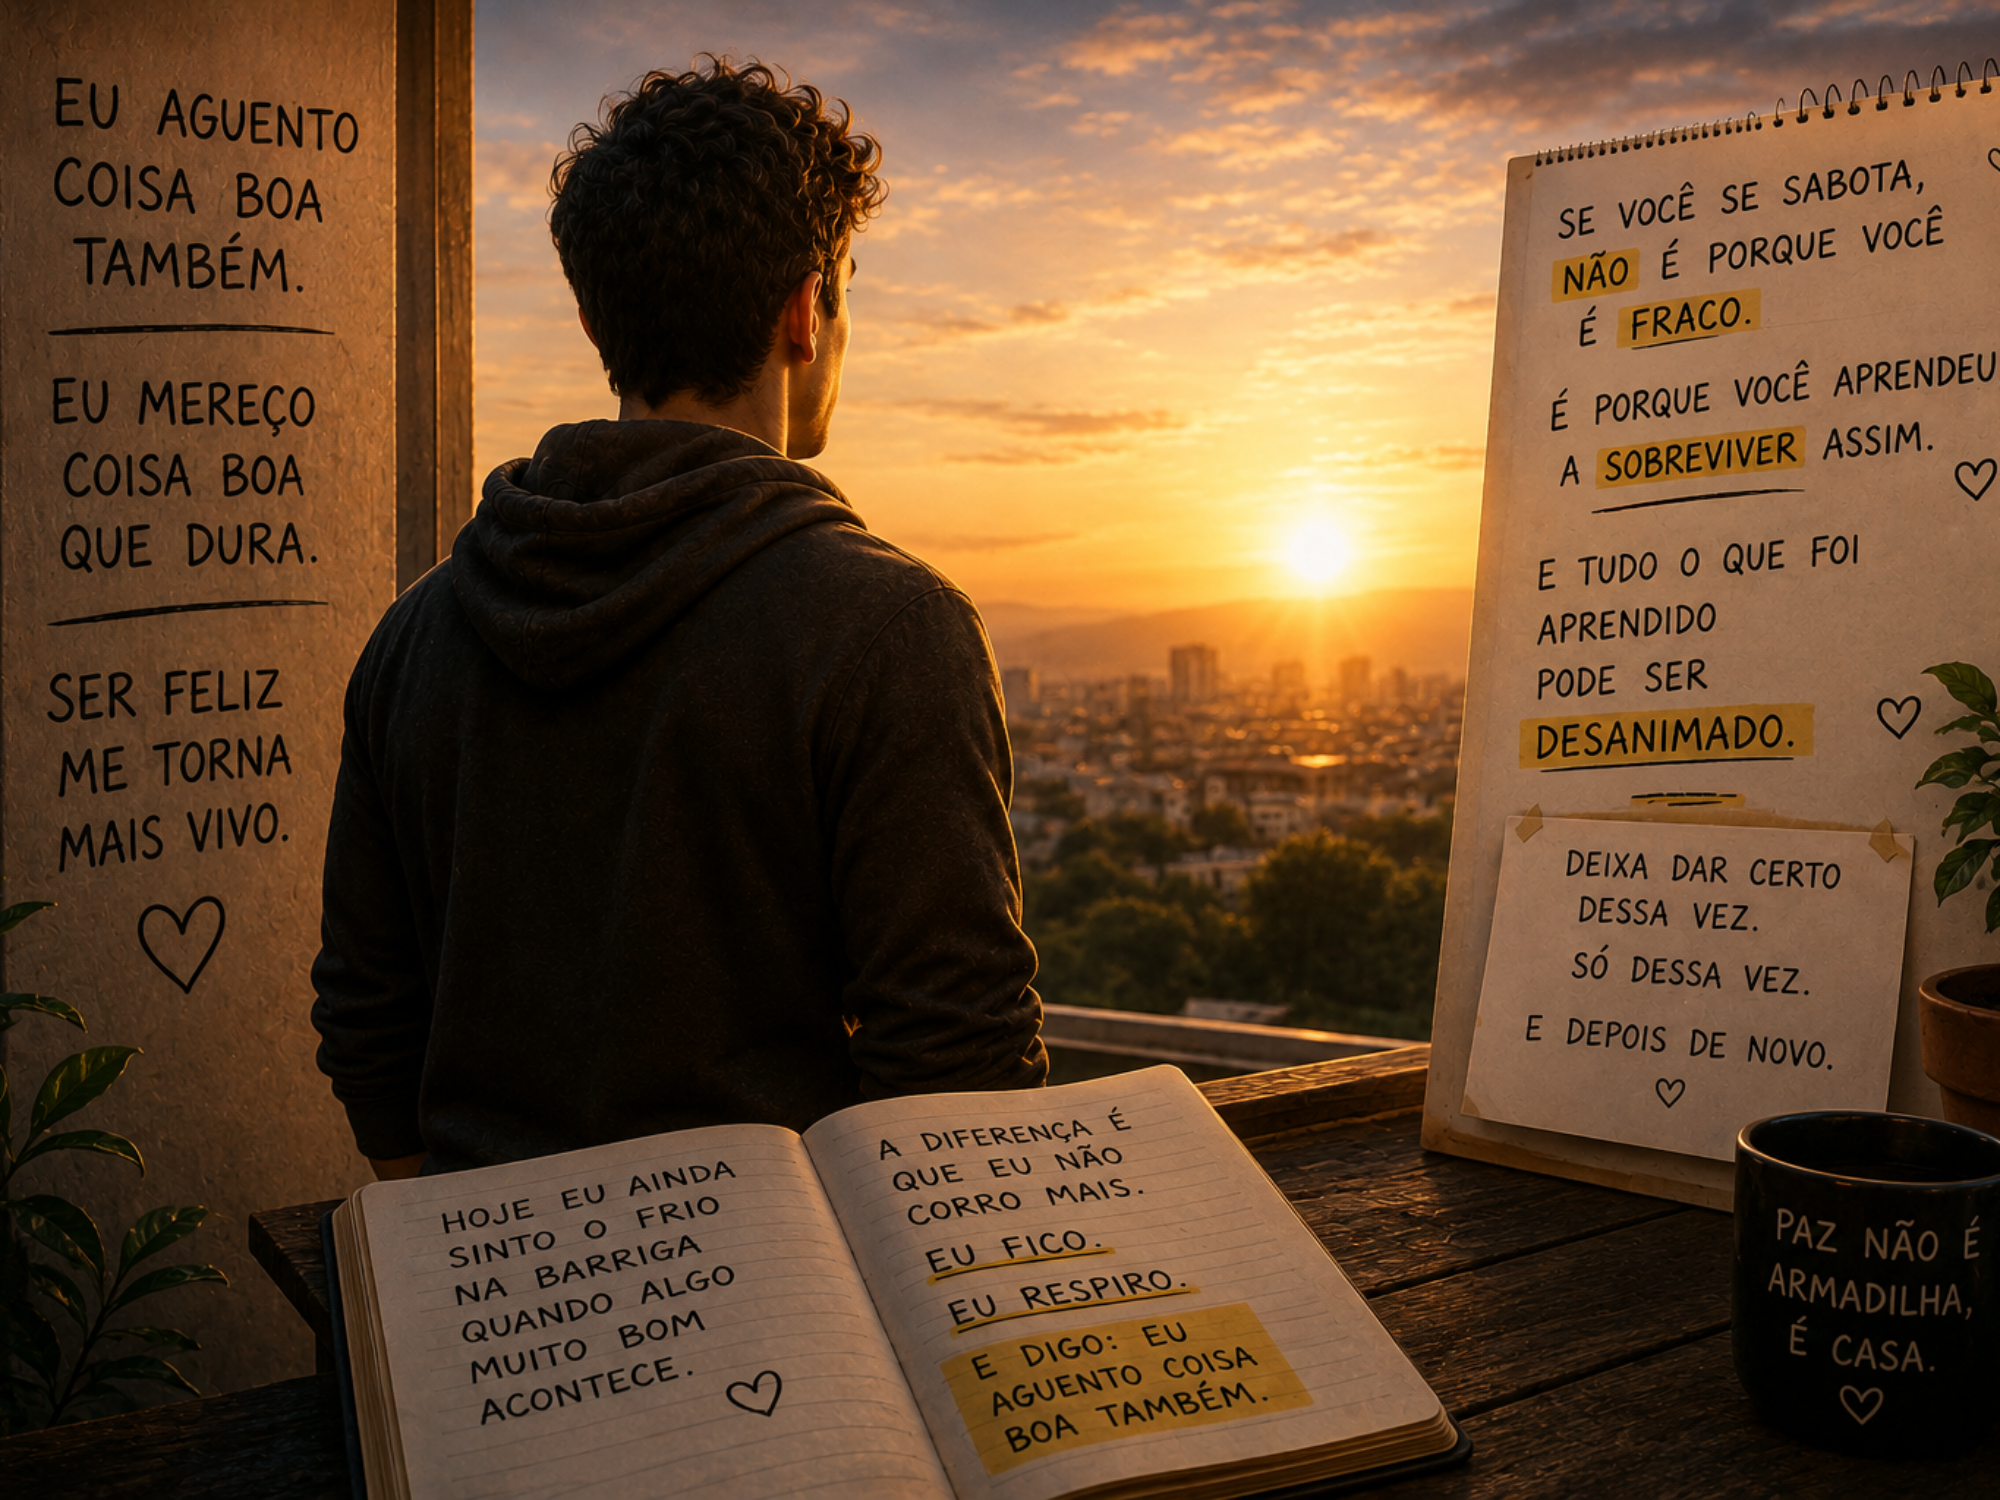 EU AGUENTO
COISA BOA
TAMBÉM.
EU MEREÇO
COISA BOA
QUE DURA.
SER FELIZ
ME TORNA
MAIS VIVO.
SE VOCÊ SE SABOTA,
NÃO É PORQUE VOCÊ
É FRACO.
É PORQUE VOCÊ APRENDEU
A SOBREVIVER ASSIM.
E TUDO O QUE FOI
APRENDIDO
PODE SER
DESANIMADO.
DEIXA DAR CERTO
DESSA VEZ.
SÓ DESSA VEZ.
E DEPOIS DE NOVO.
HOJE EU AINDA
SINTO O FRIO
NA BARRIGA
QUANDO ALGO
MUITO BOM
ACONTECE.
A DIFERENÇA É
QUE EU NÃO
CORRO MAIS.
EU FICO.
EU RESPIRO.
E DIGO: EU
AGUENTO COISA
BOA TAMBÉM.
PAZ NÃO É
ARMADILHA,
É CASA.